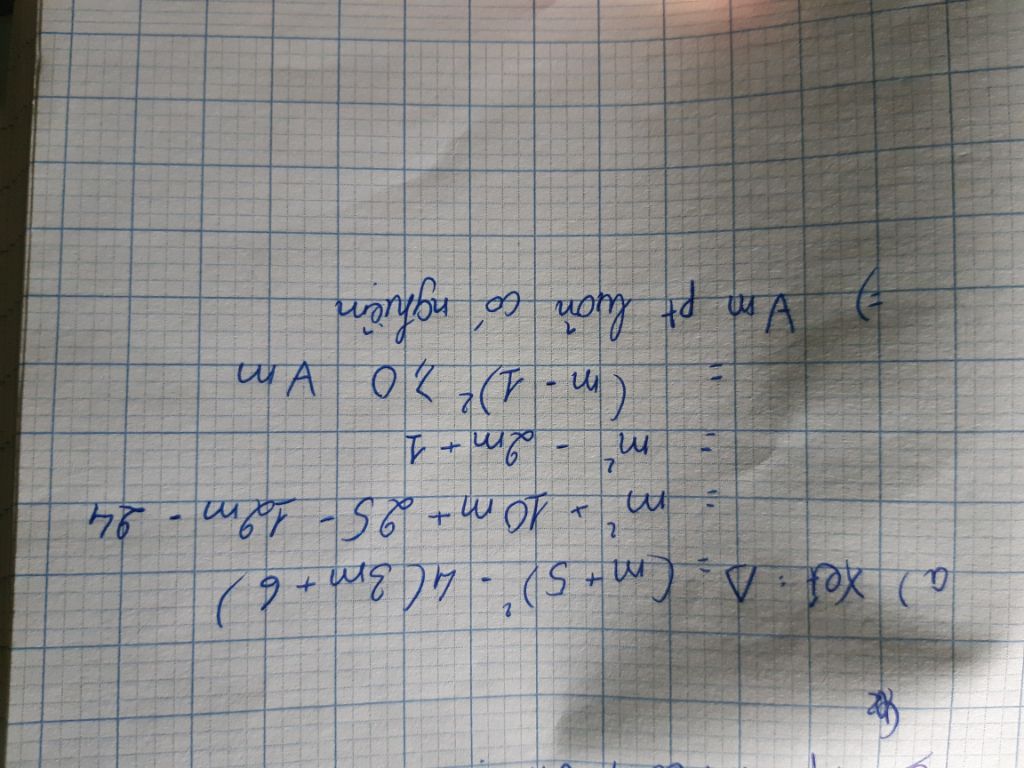 a) Xét : Δ = (m + 5)² - 4(3m + 6)
= m² + 10m + 25 - 12m - 24
= m² - 2m + 1
= (m - 1)² ⩾ 0 ∀m
=) ∀m pt luôn có nghiệm